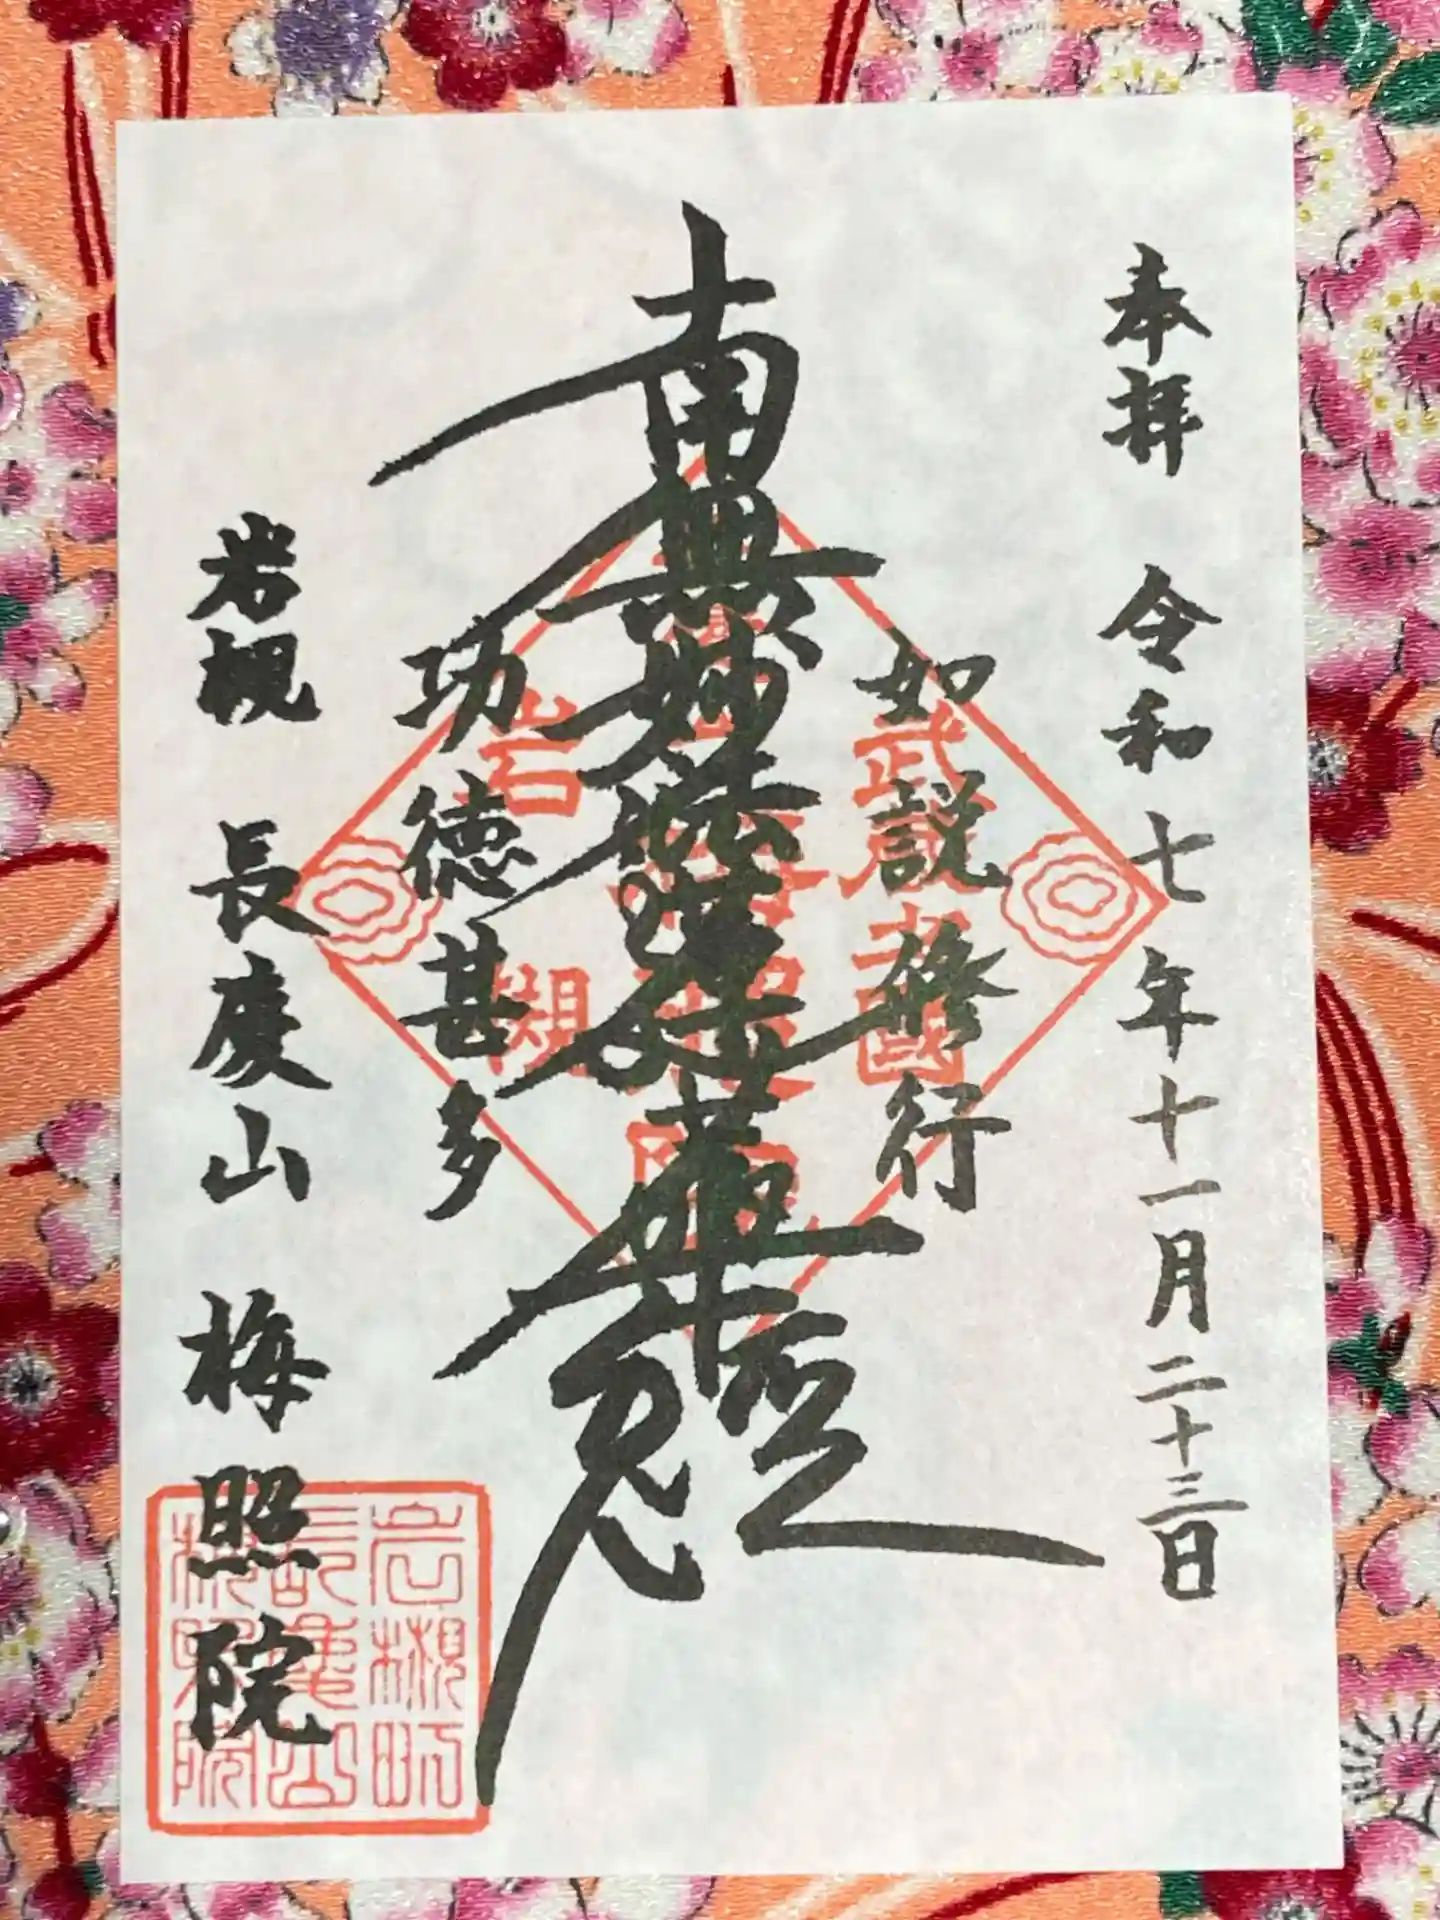 奉拝 令和七年十一月二十三日
如説修行
南無妙法蓮華経
功徳甚多
岩槻 長慶山 梅照院
武蔵國
岩槻
岩槻町
長慶山
梅照院